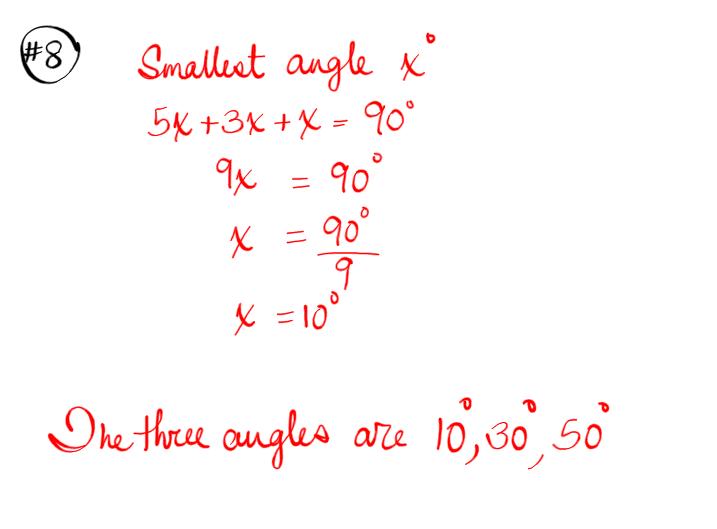 #8
Smallest angle x°
5x + 3x + x = 90°
9x = 90°
x = 90°
9
x = 10°
The three angles are 10°, 30°, 50°